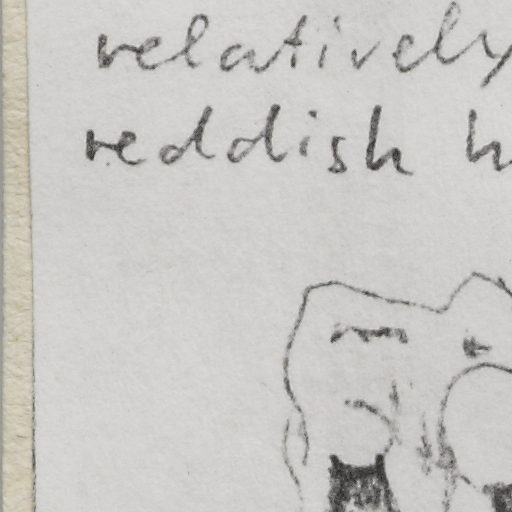 relatively
reddish